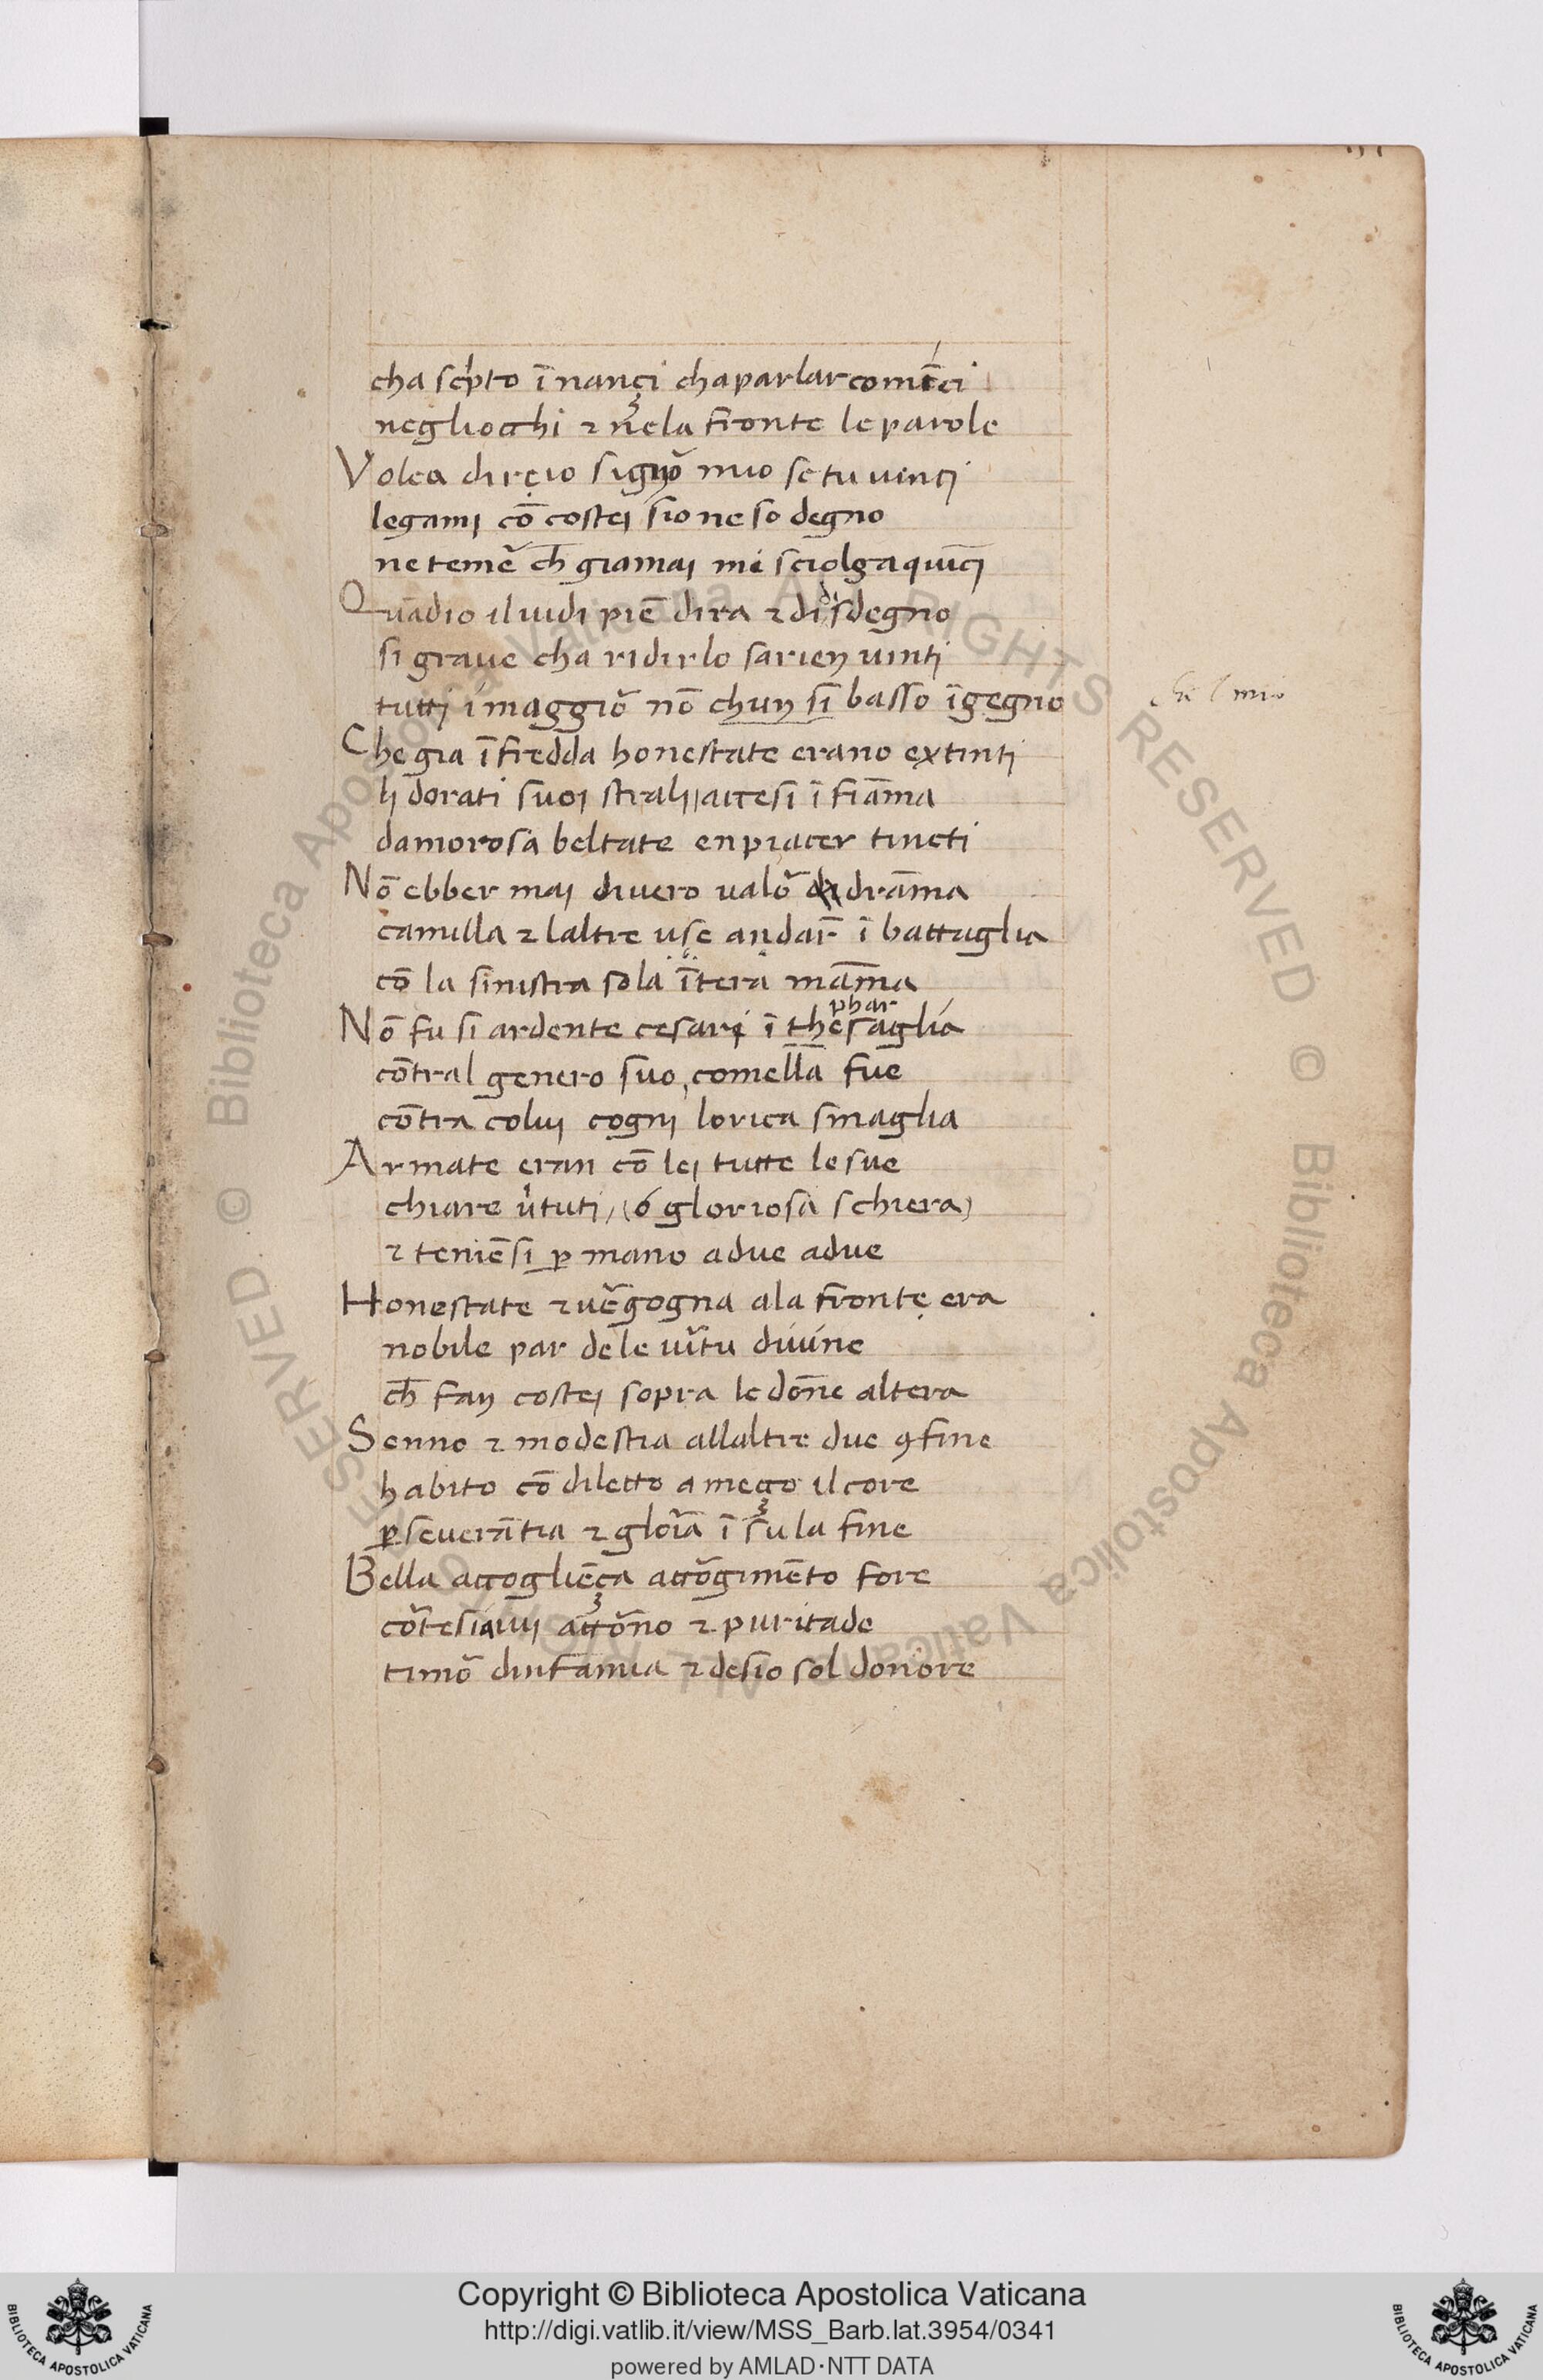 cha scͥpto ī nançi cha parlar comīci
negliocchi ⁊ nela fronte le parole
Volea dir çio signõ mio se tu uincj
legamj cō costej sio ne so degno
ne temẽ ch̄ giamaj mi sciolga quīcj
Quādio il uidi piē dira ⁊ di sdegno
si graue cha ridirlo sariey uintj
tuttj i maggiõ nō chuŋ sī basso īgegno
che l mio
Che gia ī fredda honestate erano extintj
lj dorati suoj stralj accesi ī fiāma
damorosa beltate en piacer tincti
Nō ebber maj diuero ualõ di drāma
camilla ⁊ laltre use andar̄ ī battaglia
cō la sinistra sola ītera māma
phar
Nō fu si ardente cesarj ī thesaglia
cōtral genero suo, comella fue
cōtra coluj cognj lorica smaglia
Armate eran cō lej tutte le sue
chiare ũtuti, (ó gloriosa schiera)
⁊ teniēsi ꝑ mano adue adue
Honestate ⁊ uẽgogna ala fronte era
nobile par dele uĩtu diuine
ch̄ faŋ costej sopra le dōne altera
Senno ⁊ modestia allaltre due ꝯfine
habito cō diletto a meço il core
ꝑseuerātia ⁊ glorīa ī sula fine
Bella accogliēça accõgimēto fore
cõtesia iuj attõno ⁊ puritade
timõ dinfamia ⁊ desio sol donore
Copyright © Biblioteca Apostolica Vaticana
http://digi.vatlib.it/view/MSS_Barb.lat.3954/0341
powered by AMLAD·NTT DATA